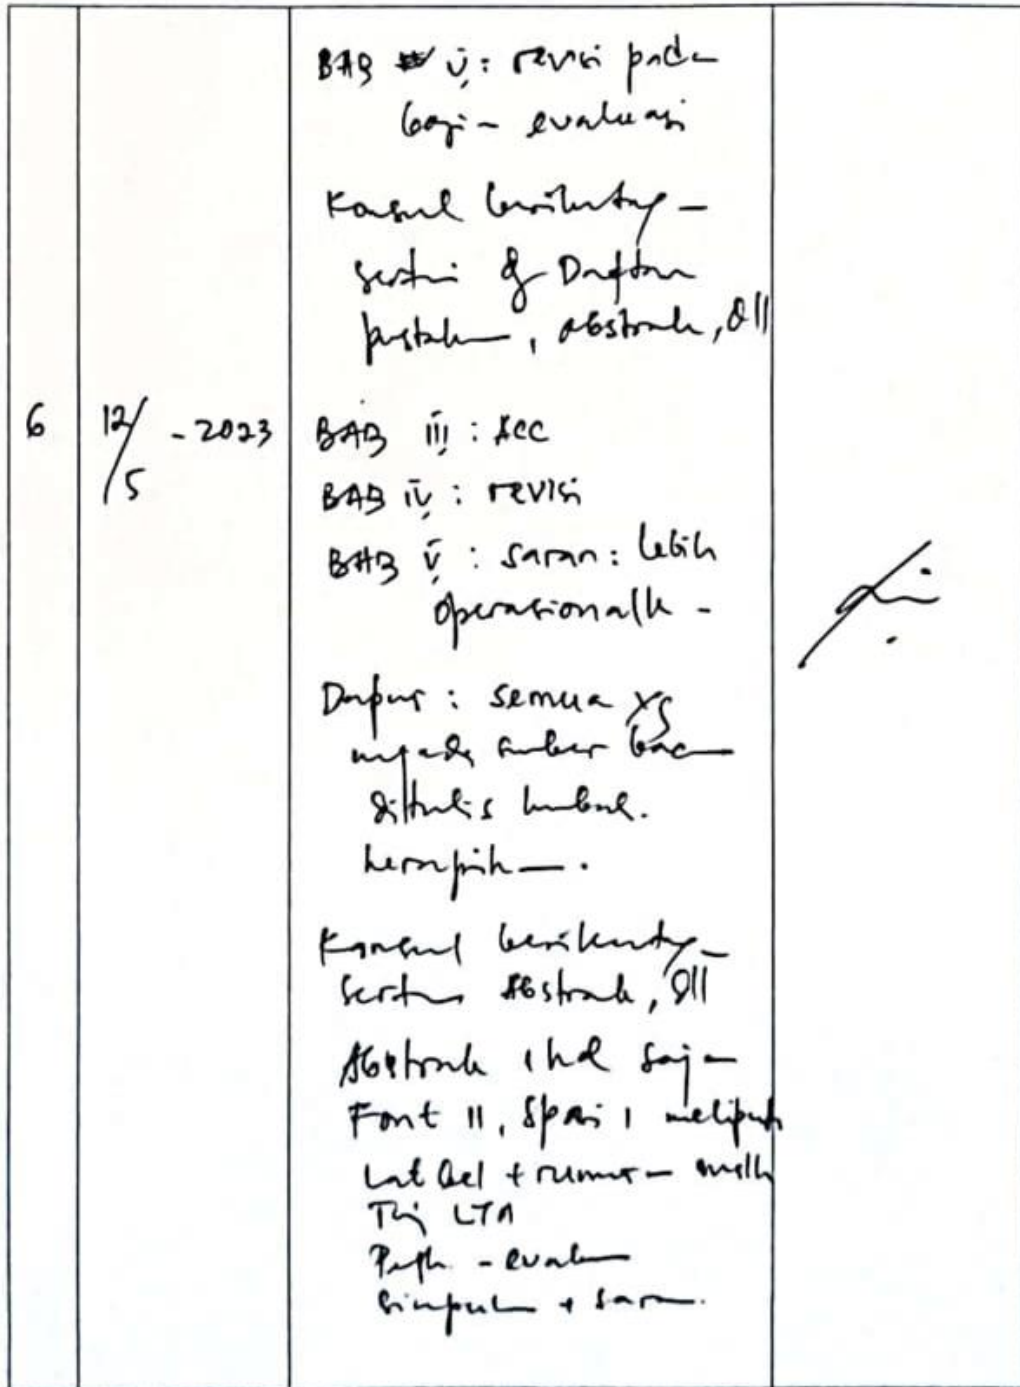 BAB V : revisi pada
bagi- evaluasi
Konsul berikutny-
serta dg Daftar
pustaka, abstrak, dll
6 12/5 - 2023 BAB III : ACC
BAB IV : revisi
BAB V : saran : lebih
operasionalk -
Dapus : semua yg
mjadi sumber bac-
dittulis kmbali.
kerapih-.
Konsul berikutny-
serta Abstrak, dll
Abstrak 1 hal saja
Font 11, Spasi 1 meliputi
Lat bel + rumus-
Tuj LTA
- evalu
Simpul- + saran.